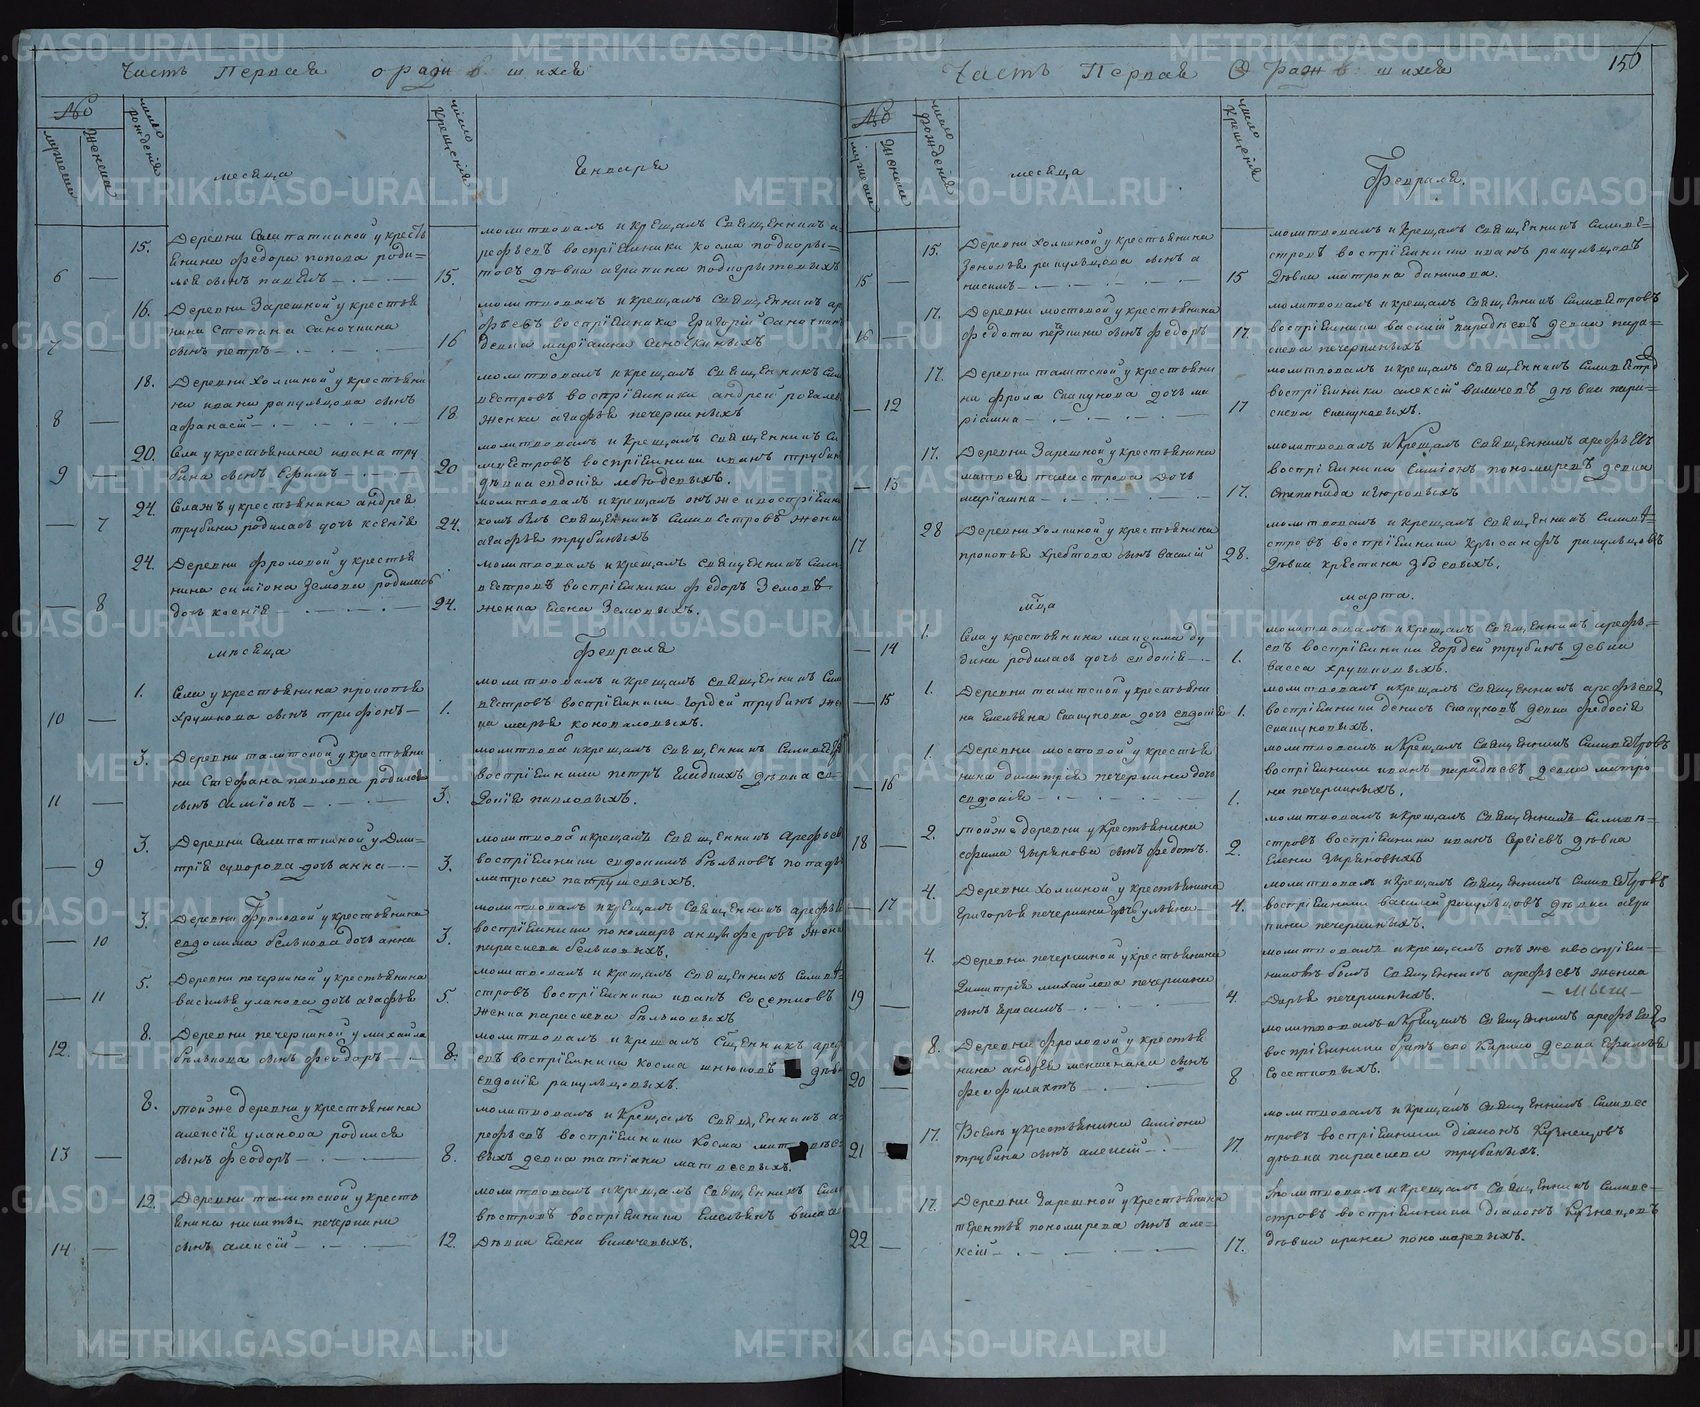 Часть Первая о родившихся
№
мужеска
женска
число рождения
месяца
число крещения
Генваря
6 —
15.
Деревни Салипаткиной у кресть
янина Федора попова роди=
лся сынъ павелъ —
15.
молитвовалъ и Крещалъ Священникъ а
рефьевъ воспрїемники косма подкоры=
товъ дѣвка агрипина подкорытовыхъ
7 —
16.
Деревни Зарешной у крестья
нина Степана Саночкина
сынъ петръ —
16
молитвовалъ и крещалъ Священникъ ар
фьевъ воспрїемники Григорїй Саночкинъ
девка марїамна Саночкиныхъ
8 —
18.
Деревни Холкиной у крестьяни
на ивана ракульцова сынъ
афанасїй —
18
молитвовалъ и крещалъ Священникъ Сил
вестровъ воспрїемники андрей рогалев
женка агафья печеркиныхъ
9 —
20.
Села у крестьянина ивана тру
бина сынъ Ефимъ —
20
молитвовалъ и Крещалъ Священникъ Си
львестровъ воспрїемники иванъ трубин
дѣвка евдокїя
— 7
24.
Села жъ у крестьянина андрея
трубина родилась дочь ксенїя
24.
молитвовалъ и крещалъ онъ же и воспрїемни
комъ былъ Священникъ Сильвестровъ женка
агафья трубиныхъ
— 8
24.
Деревни фроловой у крестья
нина симїона Земова родилась
дочь ксенїя —
24.
молитвовалъ и крещалъ священникъ Силь
вестровъ воспрїемники федоръ Земовъ
женка елена Земовыхъ.
месяца
Февраля
10 —
1.
Села у крестьянина прокопья
Хрушкова сынъ трифонъ —
1.
молитвовалъ и Крещалъ священникъ Сил
вестровъ воспрїемники Гордей трубинъ же
ка марья коноваловыхъ.
11 —
3.
Деревни талитской у крестьяни
на Стефана павлова родился
сынъ Симїонъ —
3.
молитвова и крещалъ Священникъ Сильвестр
воспрїемники петръ дѣвка ев=
докїя павловыхъ.
— 9
3.
Деревни Салипаткиной у Дми=
трїя суворова дочь анна —
3.
молитвова и крещалъ Священникъ Арефьев
воспрїемники евдокимъ бѣльковъ попадь
матрона патрушевыхъ.
— 10
3.
Деревни Фроловой у крестьянина
евдокима бѣлькова дочь анна
3.
молитвовалъ и Крещалъ Священникъ арефьев
воспрїемники пономарь анциферовъ женка
параскева бельковыхъ.
— 11
5.
Деревни печеркиной у крестьянина
василья уланова дочь агафья
5.
молитвовалъ и крещалъ Священникъ Сильве=
стровъ воспрїемники иванъ Сосетковъ
женка параскева бѣльковыхъ
12. —
8.
Деревни печеркиной у михайла
бѣлькова сынъ феодоръ —
8.
молитвовалъ и крещалъ Сщенникъ ареф
евъ воспрїемники косма дѣвк
евдокїя ракульцовыхъ.
13 —
8.
той же деревни у крестьянина
алексїя уланова родился
сынъ феодоръ —
8.
молитвовалъ и Крещалъ Священникъ а=
рефьевъ воспрїемники Косма
девка татїана матвеевыхъ.
14 —
12.
Деревни талитской у кресть
янина никиты печеркина
сынъ алексїй —
12.
молитвовалъ и крещалъ Священникъ Силь
вестровъ воспрїемники Емельянъ
Дѣвка Елена вилачевыхъ.
Часть Первая О родившихся
150
№
мужеска
женска
число рождения
месяца
число Крещения
Февраля.
15 —
15.
Деревни холкиной у крестьянина
Зеновья ракульцова сынъ а
кисимъ —
15
молитвовалъ и Крещалъ Священникъ Сильве=
стровъ воспрїемники иванъ ракульцовъ
Дѣвка матрона данилова.
16 —
17.
Деревни мостовой у крестьянина
федота сынъ федоръ
17.
молитвовалъ и крещалъ Священникъ Сильвестровъ
воспрїемники василїй девка пара=
скева печеркиныхъ
— 12
17.
Деревни талитской у крестьяни
на фрола Скакунова дочь ма
рїамна —
17
молитвовалъ и крещалъ Священникъ Сильвестров
воспрїемники алексїй вилачевъ дѣвка пара=
скева скакуновыхъ.
— 13
17.
Деревни Зарешной у крестьянина
матвея дочь
марїамна —
17.
молитвовалъ и Крещалъ Священникъ арефьевъ
воспрїемники Симїонъ пономаревъ девка
17
28
Деревни холкиной у крестьянина
прокопья Хребтова сынъ василїй
28.
молитвовалъ и крещалъ Священникъ Сильве=
стровъ воспрїемники Крысанфъ ракульцовъ
Дѣвка кристина
мца
марта.
— 14
1.
Села у крестьянина максима ду
бина родилась дочь евдокїя —
1.
молитвовалъ и крещалъ Священникъ арефь=
евъ воспрїемники Гордей трубинъ девка
васса хрушковыхъ.
— 15
1.
Деревни талитской у крестьяни
на Емельяна Скакунова дочь евдокїя
1.
молитвовалъ и крещалъ Священникъ арефьевъ
воспрїемники денисъ Скакуновъ девка федосїя
скакуновыхъ.
— 16
1.
Деревни мостовой у крестья
нина димитрїя печеркина дочь
евдокїя —
1.
молитвовалъ и Крещалъ Священникъ Сильвестровъ
воспрїемники иванъ девка матро
на печеркиныхъ.
18 —
2.
той же деревни у Крестьянина
ефима сынъ федотъ.
2.
молитвовалъ и Крещалъ Священникъ Сильве=
стровъ воспрїемники иванъ Сергїевъ дѣвка
Елена
— 17
4.
Деревни Холкиной у Крестьянина
Григорья печеркина дочь ульяна
4.
молитвовалъ и Крещалъ Священникъ Сильвестровъ
воспрїемники василїй ракульцовъ дѣвка агри
пина печеркиныхъ.
19 —
4.
Деревни печеркиной у крестьянина
Димитрїя михайлова печеркина
сынъ Герасимъ —
4.
молитвовалъ и крещалъ онъ же и воспрїем=
никомъ былъ Священникъ арефьевъ женка
Дарья печеркиныхъ.
20 —
8.
Деревни Фроловой у крестья
нина андрея сынъ
феофилактъ —
8
молитвовалъ и Крещалъ Священникъ арефьевъ
воспрїемники братъ его Карило девка Ефимья
Сосетковыхъ.
21 —
17.
В селе у Крестьянина Симїона
трубина сынъ алексїй —
17.
молитвовалъ и крещалъ Священникъ Сильвес
тровъ воспрїемники дїаконъ Кузнецовъ
дѣвка параскева трубиныхъ.
22 —
17.
Деревни Зарешной у Крестьянина
терентья пономарева сынъ але=
ксїй —
17.
молитвовалъ и крещалъ Священникъ Сильве=
стровъ воспрїемники дїаконъ Кузнецовъ
дѣвка ирина пономаревыхъ.
METRIKI.GASO-URAL.RU